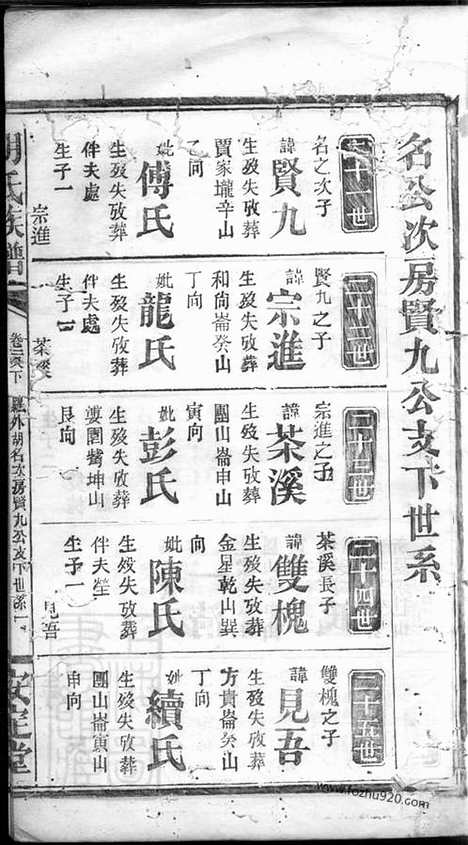 名公次房賢九公支下世系
二十一世
名之次子
諱賢九
生歿失攷葬
賈家壠辛山
乙向
妣傅氏
生歿失攷葬
伴夫處
生子一
宗進
二十二世
賢九之子
諱宗進
生歿失攷葬
和尚崙癸山
丁向
妣龍氏
生歿失攷葬
伴夫處
生子
茶溪
二十三世
宗進之子
諱茶溪
生歿失攷葬
團山崙申山
寅向
妣彭氏
生歿失攷葬
坤山
艮向
二十四世
茶溪長子
諱雙槐
生歿失攷葬
金星乾山巽
向
妣陳氏
生歿失攷葬
伴夫塋
生子一
見吾
二十五世
雙槐之子
諱見吾
生歿失攷葬
方貴崙癸山
丁向
妣續氏
生歿失攷葬
團山崙寅山
申向
胡氏族譜
卷二次下
外胡名次房賢九公支下世系一
安定堂
www.fozhu920.com